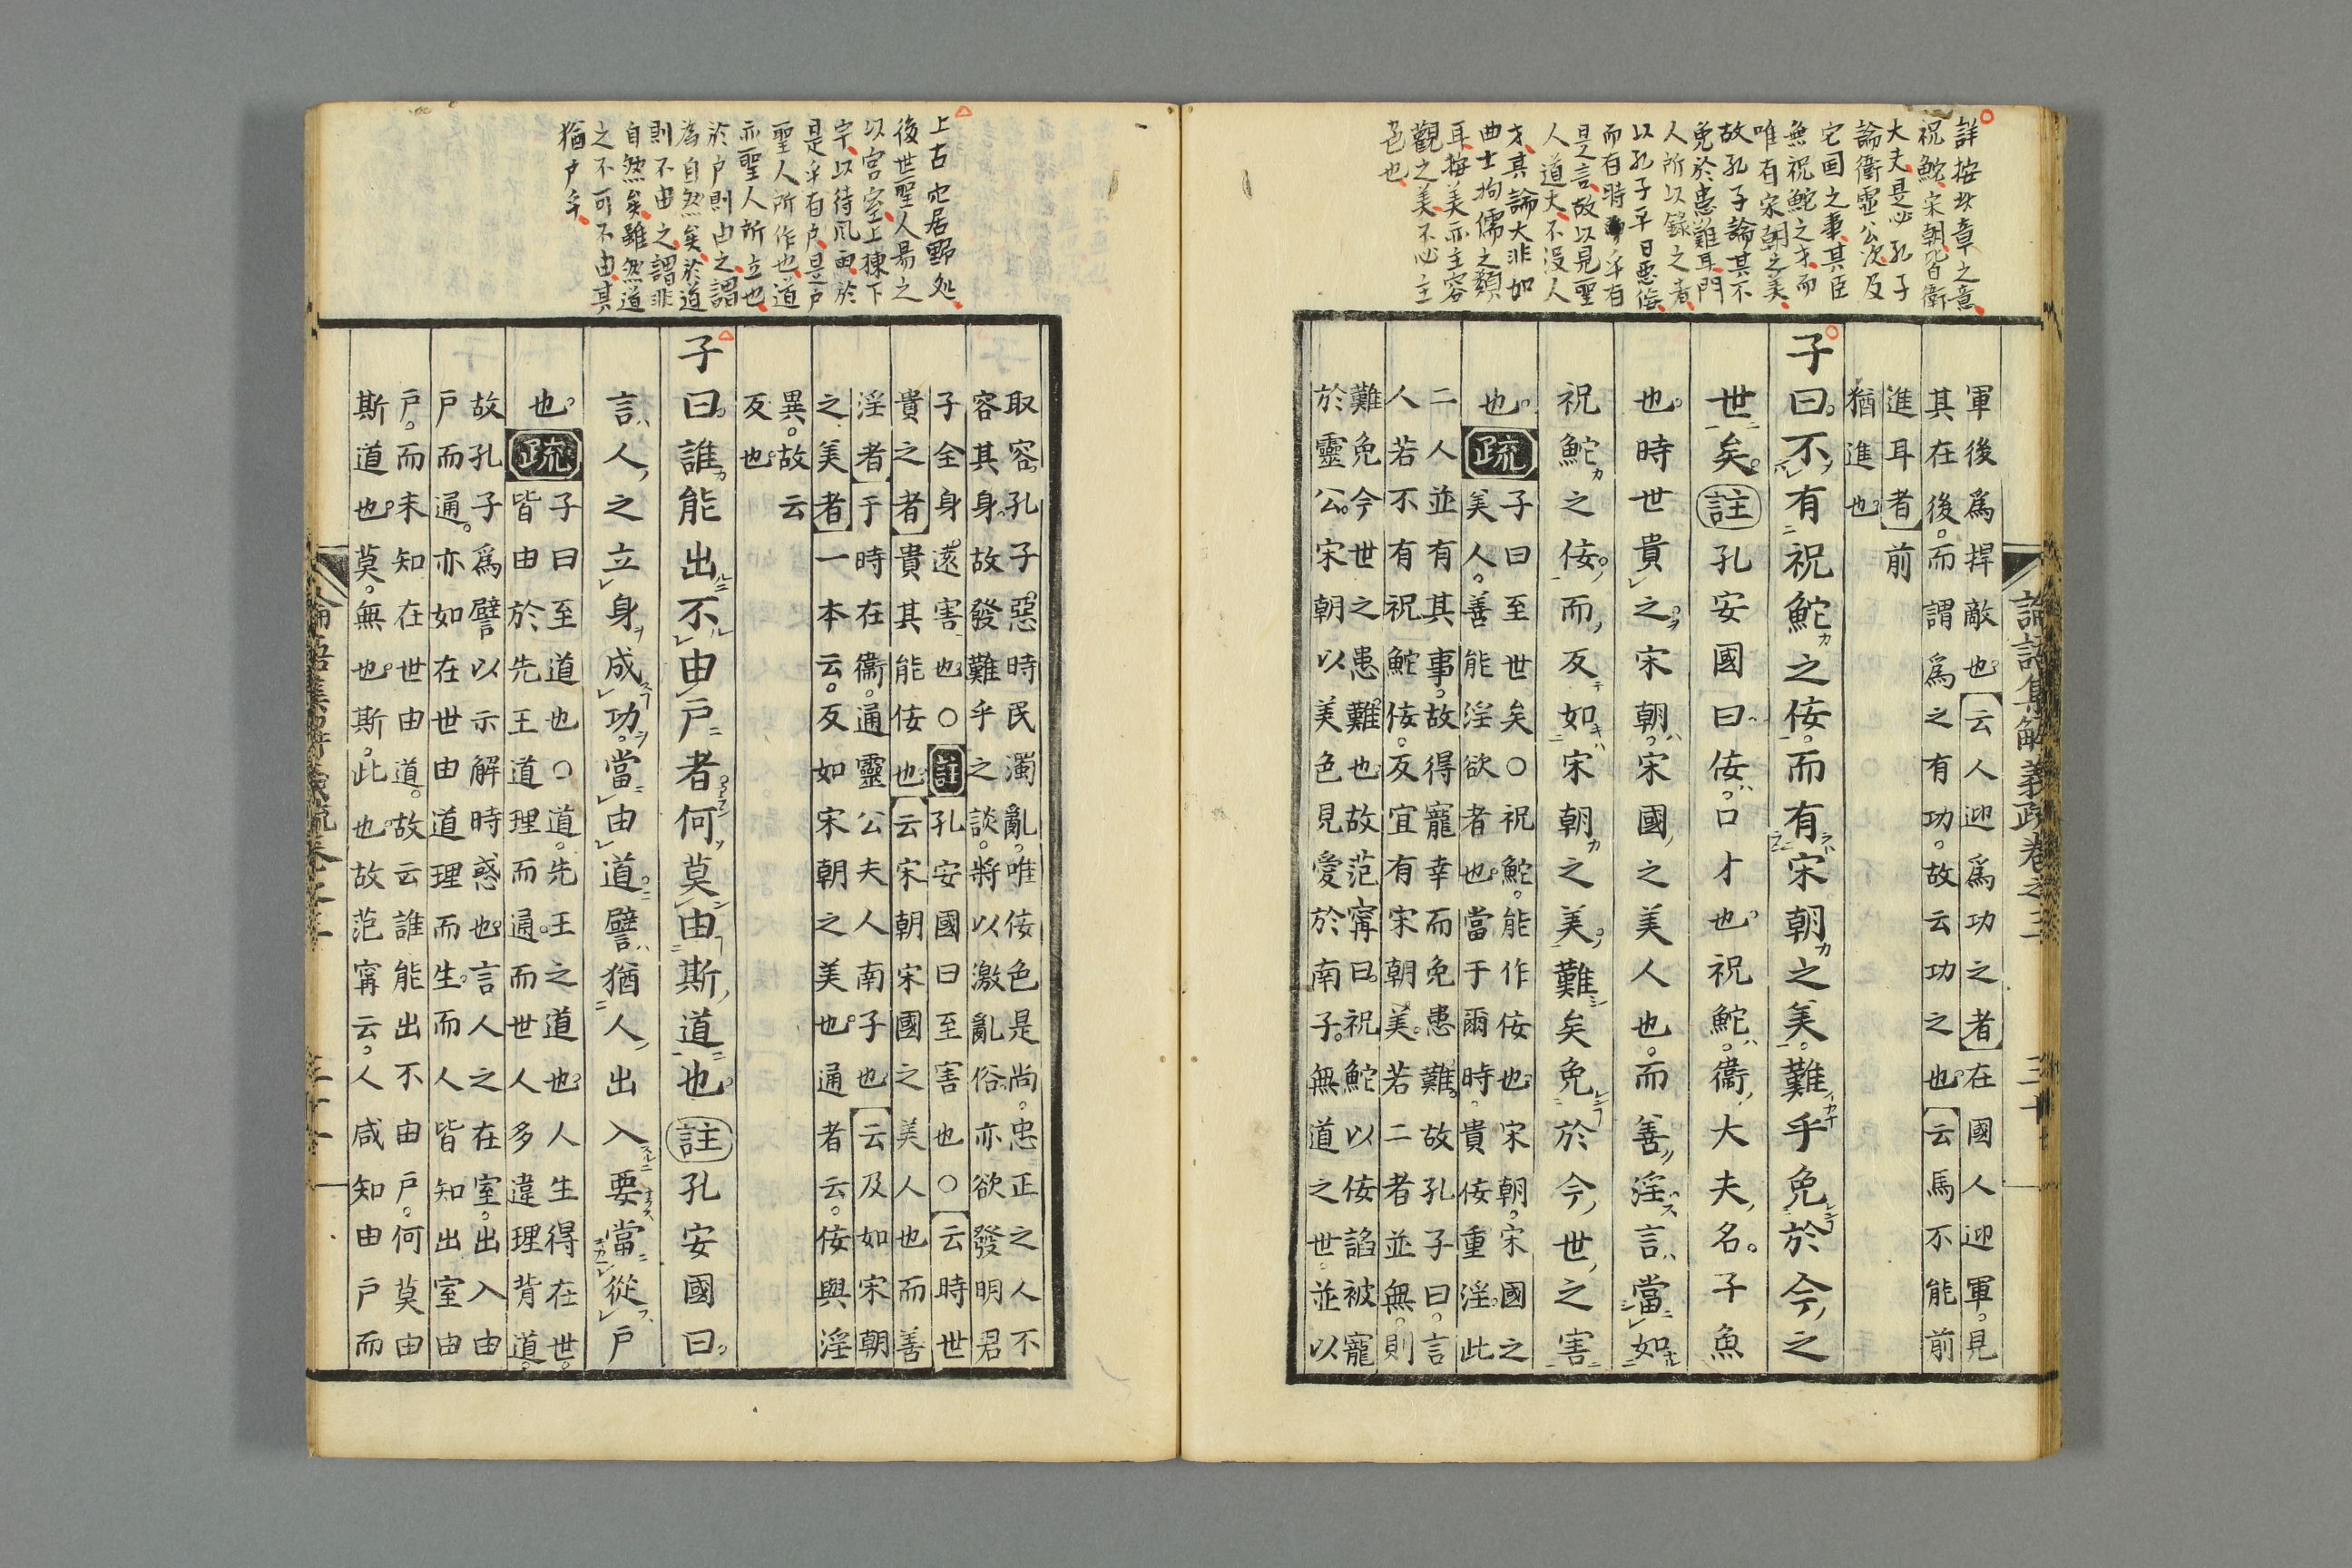 詳按此章之意
祝鮀宋朝皆衛
大夫是必孔子
論衛霊公次及
它国之事其臣
無祝鮀之才而
唯有宋朝之美
故孔子論其不
免於患難耳門
人所以録之者
以孔子平日悪佞
而有時乎有
是言故以見聖
人道大不没人
才其論大非如
曲士拘儒之類
耳按美亦主容
觀之美不必主
色也
論語集解義疏卷之三 三十
軍後爲捍敵也【云人迎爲功之者】在國人迎軍。見
其在後。而謂爲之有功。故云功之也。【云馬不能前
進耳者】前
猶進也
子曰。不有祝鮀之佞。而有宋朝之美。難乎免於今之
世矣。註孔安國曰。佞。口才也。祝鮀。衞大夫名。子魚
也。時世貴之。宋朝。宋國之美人也。而善淫言。當如
祝鮀之佞。而反如宋朝之美。難矣免於今世之害
也。疏子曰至世矣〇祝鮀。能作佞也。宋朝。宋國之
美人。善能淫欲者也。當于爾時。貴佞重淫。此
二人並有其事。故得寵幸而免患難。故孔子曰。言
人若不有祝鮀佞。反宜有宋朝美。若二者並無。則
難免今世之患難也。故范甯曰。祝鮀以佞諂被寵
於靈公。宋朝以美色見愛於南子。無道之世。並以
上古穴居野処
後世聖人易之
以宮室上棟下
宇以待風雨於
是乎有戸是戸
聖人所作也道
亦聖人所立也
於戸則由之謂
為自然矣於道
則不由之謂非
自然矣雖然道
之不可不由其
猶戸乎
取容。孔子惡時民濁亂。唯佞色是尚。忠正之人不
容其身。故發難乎之談。將以激亂俗。亦欲發明君
子全身。遠害也〇註孔安國曰至害也〇【云時世
貴之者】貴其能佞也。【云宋朝宋國之美人也而善
淫者】于時在衞。通靈公夫人南子也。【云及如宋朝
之美者】一本云。反如宋朝之美也。通者云。佞與淫
異。故云
反也
子曰。誰能出不由戸者何莫由斯道也。註孔安國曰。
言人之立身成功。當由道。譬猶人出入要當從戸
也。疏子曰至道也〇道。先王之道也。人生得在世。
皆由於先王道理而通。而世人多違理背道。
故孔子爲譬以示解時惑也。言人之在室。出入由
戸而通。亦如在世由道理而生。而人皆知出室由
戸。而未知在世由道。故云誰能出不由戸。何莫由
斯道也。莫。無也。斯。此也。故范甯云。人咸知由戸而